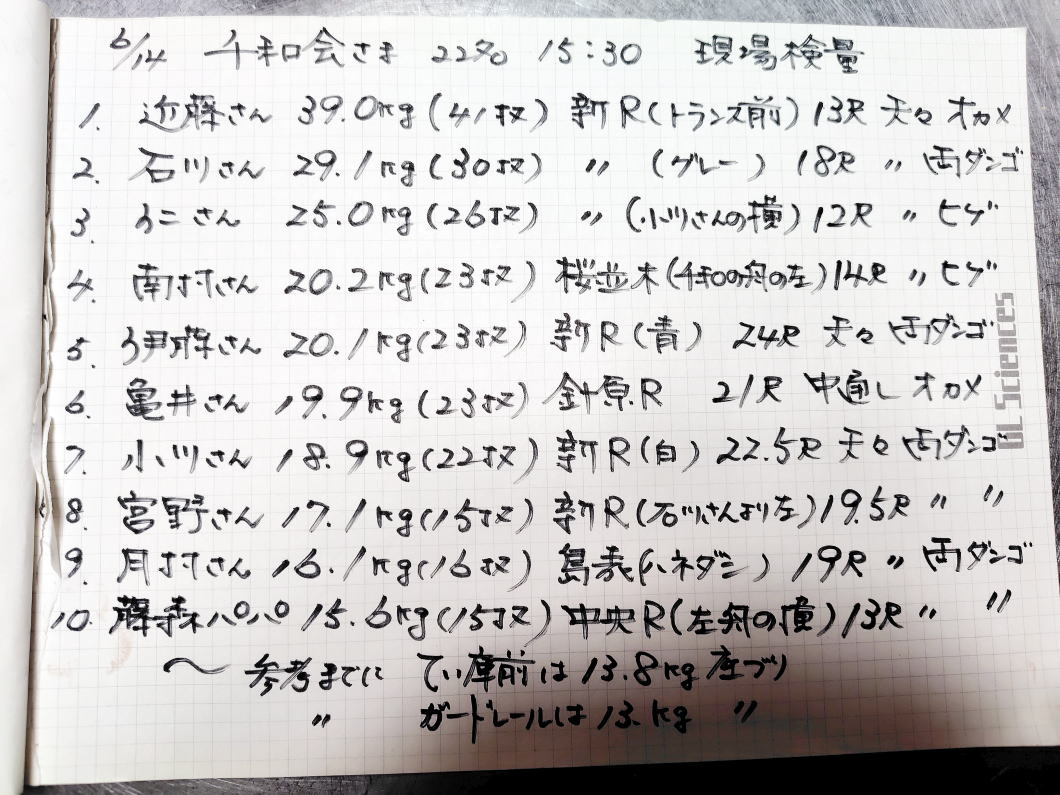 6/14 千和会さま 22名 15:30 現場検量
1. 近藤さん 39.0kg(41枚) 新R(トランス前) 13尺 天々 オカメ
2. 石川さん 29.1kg(30枚) 〃 (グレー) 18尺 〃 両ダンゴ
3. さん 25.0kg(26枚) 〃 (小川さんの横) 12尺 〃 ヒゲ
4. 南村さん 20.2kg(23枚) 桜並木(千和の舟の左) 14尺 〃 ヒゲ
5. 伊藤さん 20.1kg(23枚) 新R(青) 24尺 天々 両ダンゴ
6. 亀井さん 19.9kg(23枚) 針原R 21尺 中通し オカメ
7. 小川さん 18.9kg(22枚) 新R(白) 22.5尺 天々 両ダンゴ
8. 宮野さん 17.1kg(15枚) 新R(石川さんより左) 19.5尺 〃 〃
9. 月村さん 16.1kg(16枚) 島裏(ハネダシ) 19尺 〃 両ダンゴ
10. 藤森パパ 15.6kg(15枚) 中央R(左舟の横) 13尺 〃 〃
〜 参考までに てい庫前は 13.8kg 座づり
〃 ガードレールは 13.kg 〃
GL Sciences